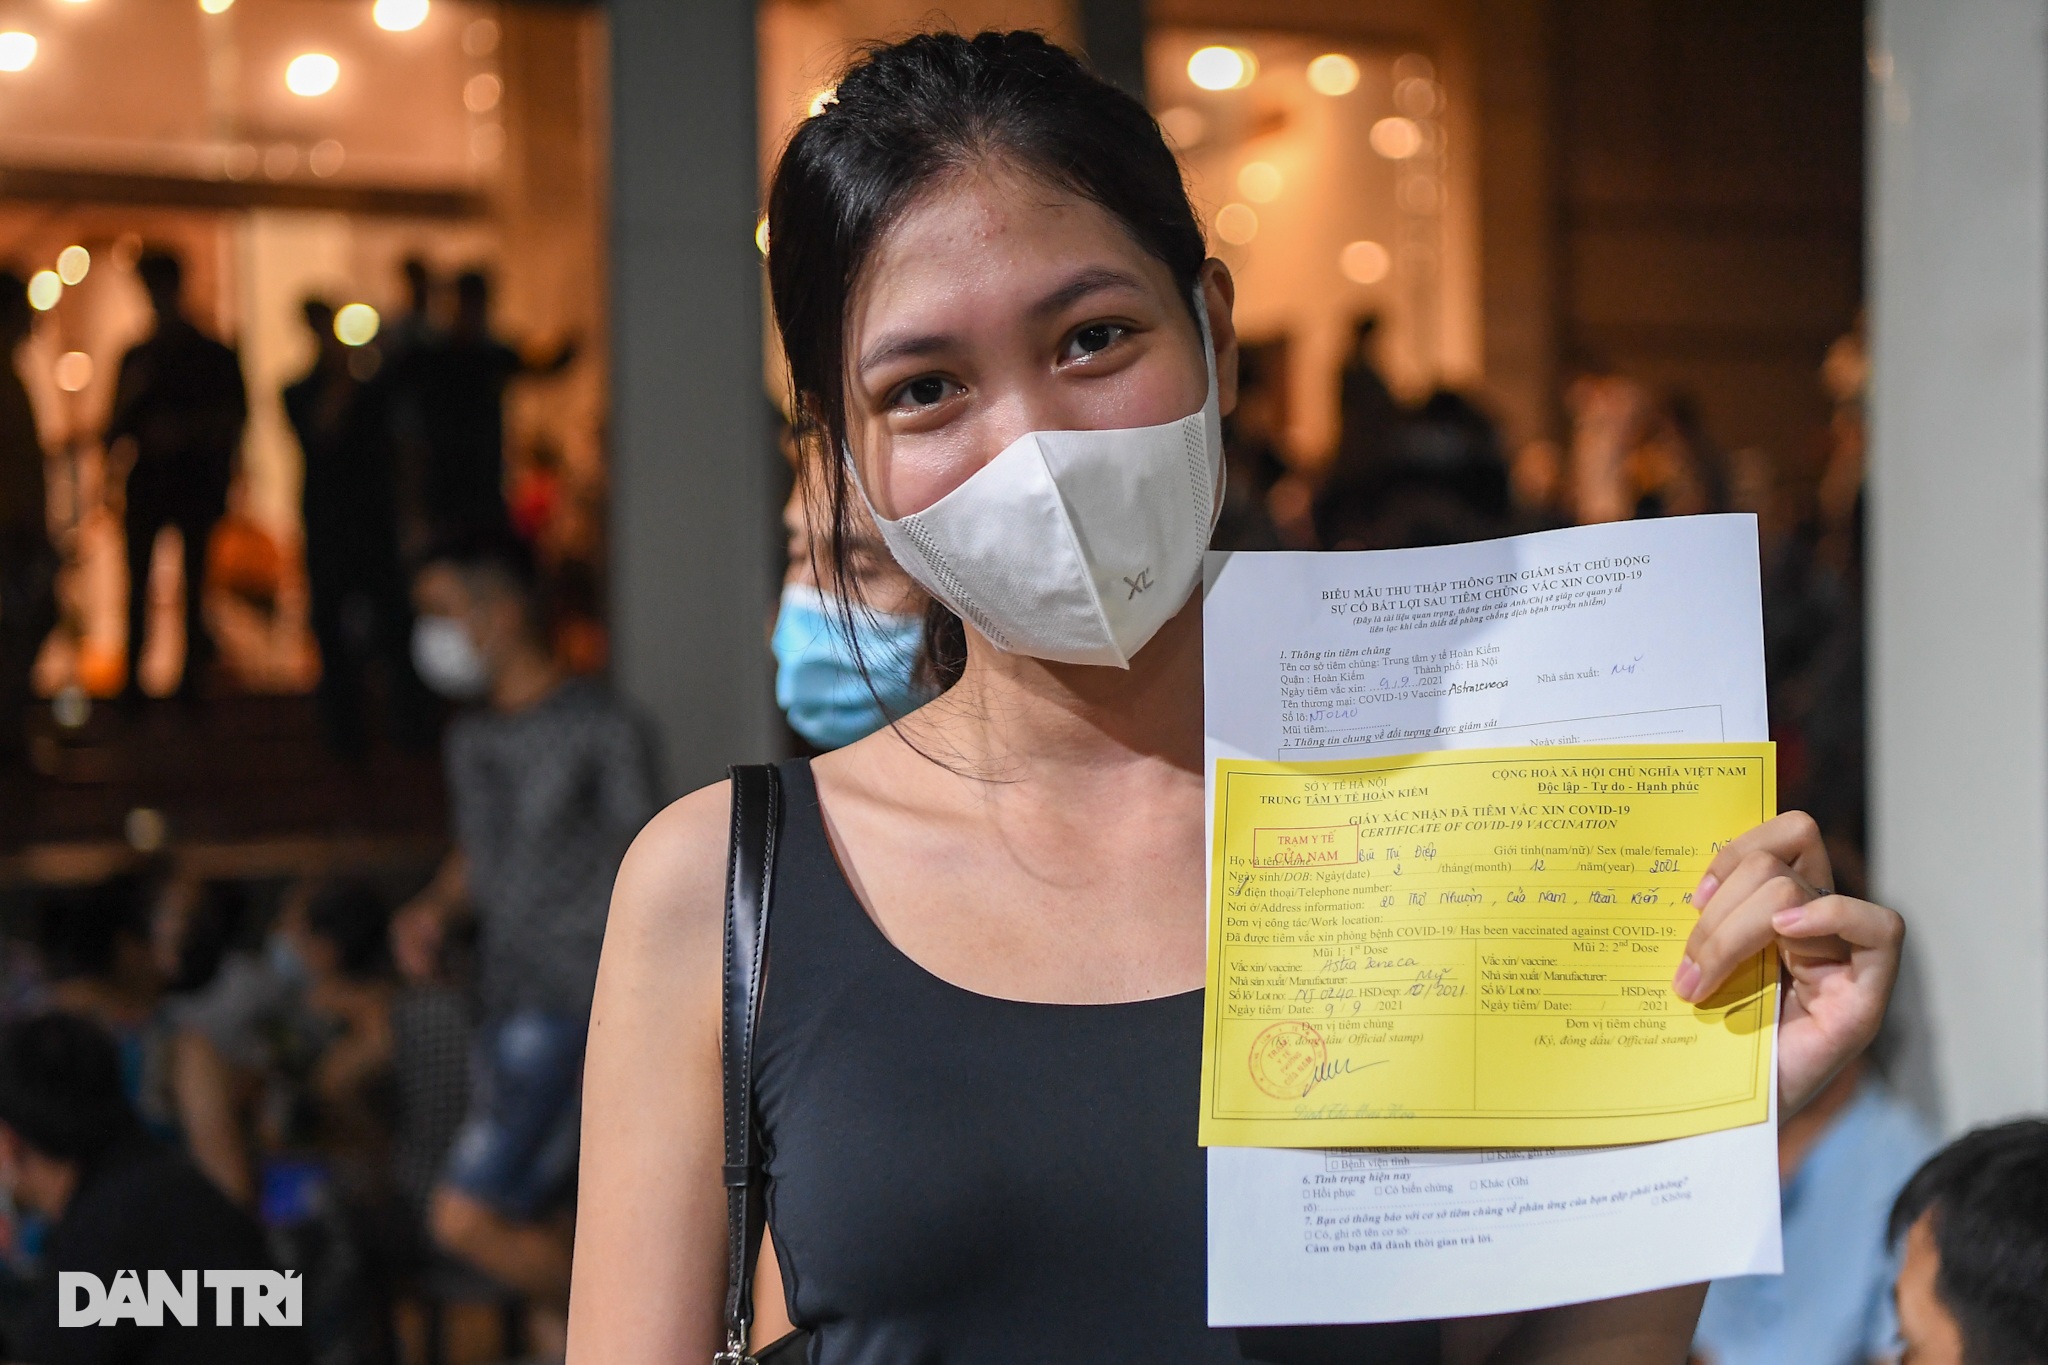 XL'
BIỂU MẪU THU THẬP THÔNG TIN GIÁM SÁT CHỦ ĐỘNG
SỰ CỐ BẤT LỢI SAU TIÊM CHỦNG VẮC XIN COVID-19
(Đây là tài liệu quan trọng, thông tin của Anh/Chị sẽ giúp cơ quan y tế
liên lạc khi cần thiết để phòng chống dịch bệnh truyền nhiễm)
1. Thông tin tiêm chủng
Tên cơ sở tiêm chủng: Trung tâm y tế Hoàn Kiếm
Quận : Hoàn Kiếm Thành phố: Hà Nội
Ngày tiêm vắc xin: 9/9/2021 Nhà sản xuất: Mỹ
Tên thương mại: COVID-19 Vaccine Astrazeneca
Số lô:
Mũi tiêm:
2. Thông tin chung về đối tượng được giám sát
Ngày sinh:
SỞ Y TẾ HÀ NỘI
TRUNG TÂM Y TẾ HOÀN KIẾM
CỘNG HOÀ XÃ HỘI CHỦ NGHĨA VIỆT NAM
Độc lập - Tự do - Hạnh phúc
GIẤY XÁC NHẬN ĐÃ TIÊM VẮC XIN COVID-19
CERTIFICATE OF COVID-19 VACCINATION
TRẠM Y TẾ
CỬA NAM
Họ và tên/Name: Bùi Thị Điệp Giới tính(nam/nữ)/ Sex (male/female): Nữ
Ngày sinh/DOB: Ngày(date) 2 /tháng(month) 12 /năm(year) 2001
Số điện thoại/Telephone number:
Nơi ở/Address information: 20 Thợ Nhuộm, Cửa Nam, Hoàn Kiếm, H
Đơn vị công tác/Work location:
Đã được tiêm vắc xin phòng bệnh COVID-19/ Has been vaccinated against COVID-19:
Mũi 1: 1st Dose
Vắc xin/ vaccine: Astra Zeneca
Nhà sản xuất/ Manufacturer: Mỹ
Số lô/ Lot no: NJ 0240 HSD/exp: 10/2021
Ngày tiêm/ Date: 9/9/2021
Đơn vị tiêm chủng
(Ký, đóng dấu/ Official stamp)
TRẠM
Y TẾ
PHƯỜNG
CỬA NAM
Mũi 2: 2nd Dose
Vắc xin/ vaccine:
Nhà sản xuất/ Manufacturer:
Số lô/ Lot no: HSD/exp:
Ngày tiêm/ Date: / /2021
Đơn vị tiêm chủng
(Ký, đóng dấu/ Official stamp)
Bệnh viện huyện
□ Bệnh viện tỉnh □ Khác, ghi rõ
6. Tình trạng hiện nay
□ Hồi phục □ Có biến chứng □ Khác (Ghi
rõ):
7. Bạn có thông báo với cơ sở tiêm chủng về phản ứng của bạn gặp phải không?
□ Có, ghi rõ tên cơ sở: □ Không
Cảm ơn bạn đã dành thời gian trả lời.
DÂN TRÍ